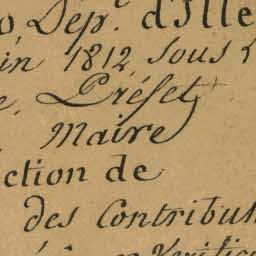 Dép.t d'Ille
in 1812, sous
Préfet
Maire
ction de
des Contribu
Verific